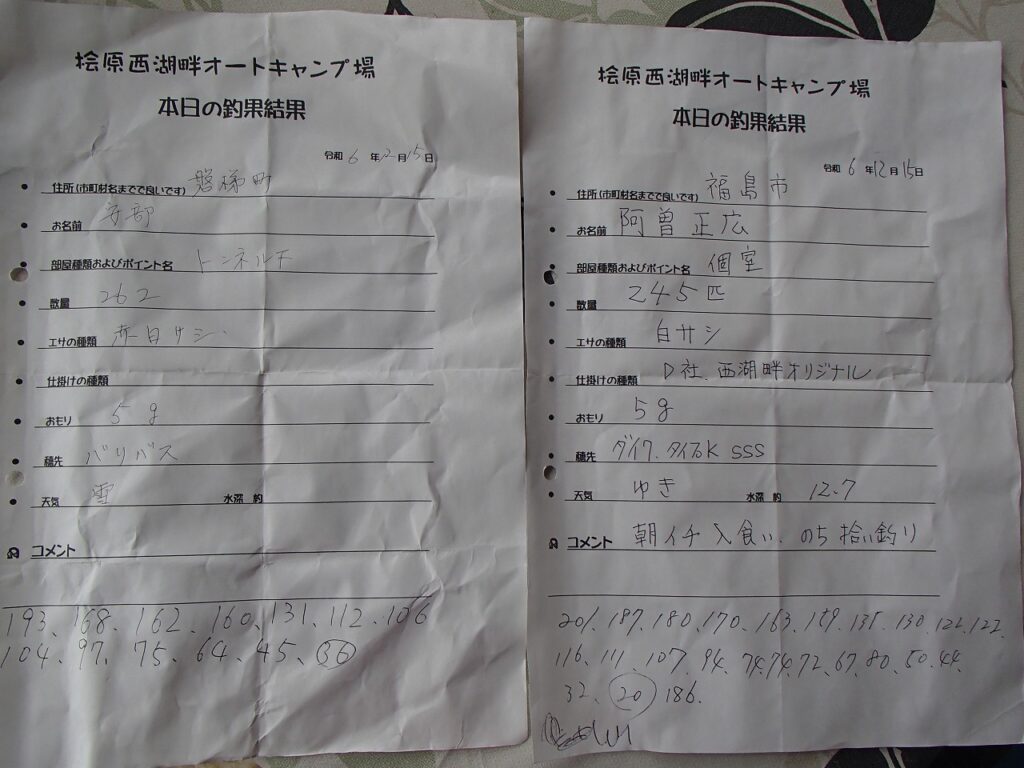 桧原西湖畔オートキャンプ場
本日の釣果結果
令和 6 年 12月 15日
住所(市町村名までで良いです) 磐梯町
お名前 安部
部屋種類およびポイント名 トンネルチ
数量 262
エサの種類 赤白サシ.
仕掛けの種類
おもり 5g
穂先 バリバス
天気 雪 水深 約
コメント
193、168、162、160、131、112、106
104、97、75、64、45、36
桧原西湖畔オートキャンプ場
本日の釣果結果
令和 6 年 12月 15日
住所(市町村名までで良いです) 福島市
お名前 阿曽正広
部屋種類およびポイント名 個室
数量 245匹
エサの種類 白サシ
仕掛けの種類 D社.西湖畔オリジナル
おもり 5g
穂先 ダイワ.タイプK SSS
天気 ゆき 水深 約 12.7
コメント 朝イチ入食い.のち拾い釣り
201、187、180、170、163、159、135、130、122、122、
116、111、107、94、74、74、72、67、80、50、44、
32、20 186.